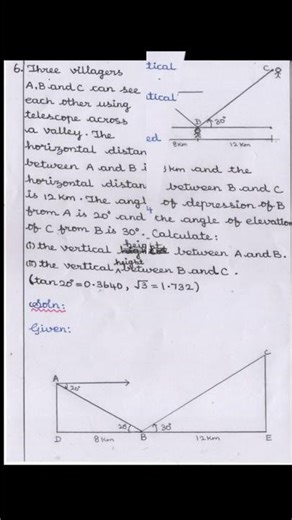 6. Three villagers
A,B and C can see
each other using
telescope across
a valley. The
horizontal distan
between A and B i
horizontal distan
is 12 Km. The angl
from A is 20° and
tical
tical
ed
C
B
30°
8 Km
12 Km
8 Km and the
between B and C
of depression of B
the angle of elevation
of C from B is 30°. Calculate:
(i) the vertical height between A and B.
(ii) the vertical height between B and C.
(tan 20° = 0.3640, √3 = 1.732)
Soln:
Given:
C
A
20°
20°
30°
D
8 Km
B
12 Km
E